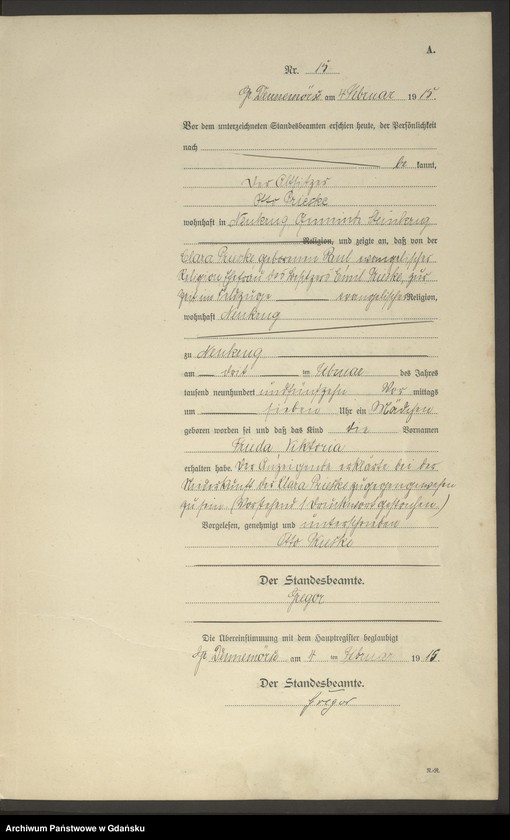 A.
Nr. 15
Gr. Dennemörse am 4 Februar 1915.
Vor dem unterzeichneten Standesbeamten erschien heute, der Persönlichkeit
nach
be kannt,
Der Altsitzer
Otto
wohnhaft in Neukrug, Gemeinde
Religion, und zeigte an, daß von der
Clara geborenen evangelischer
Religion Ehefrau des Besitzers Emil zur
Zeit im Feldzuge evangelischer Religion,
wohnhaft Neukrug
zu Neukrug
am drei ten Februar des Jahres
tausend neunhundert undfünfzehn Vor mittags
um sieben Uhr ein Mädchen
geboren worden sei und daß das Kind die Vornamen
Frieda Viktoria
erhalten habe. Der Anzeigende erklärte bei der
Niederkunft der Clara zugegen gewesen
zu sein. (Vorstehend 1 Druckwort gestrichen.)
Vorgelesen, genehmigt und unterschrieben
Otto
Der Standesbeamte.
Gregor
Die Übereinstimmung mit dem Hauptregister beglaubigt
Gr. Dennemörse am 4 ten Februar 1915.
Der Standesbeamte.
Gregor
R.-R.
Archiwum Państwowe w Gdańsku